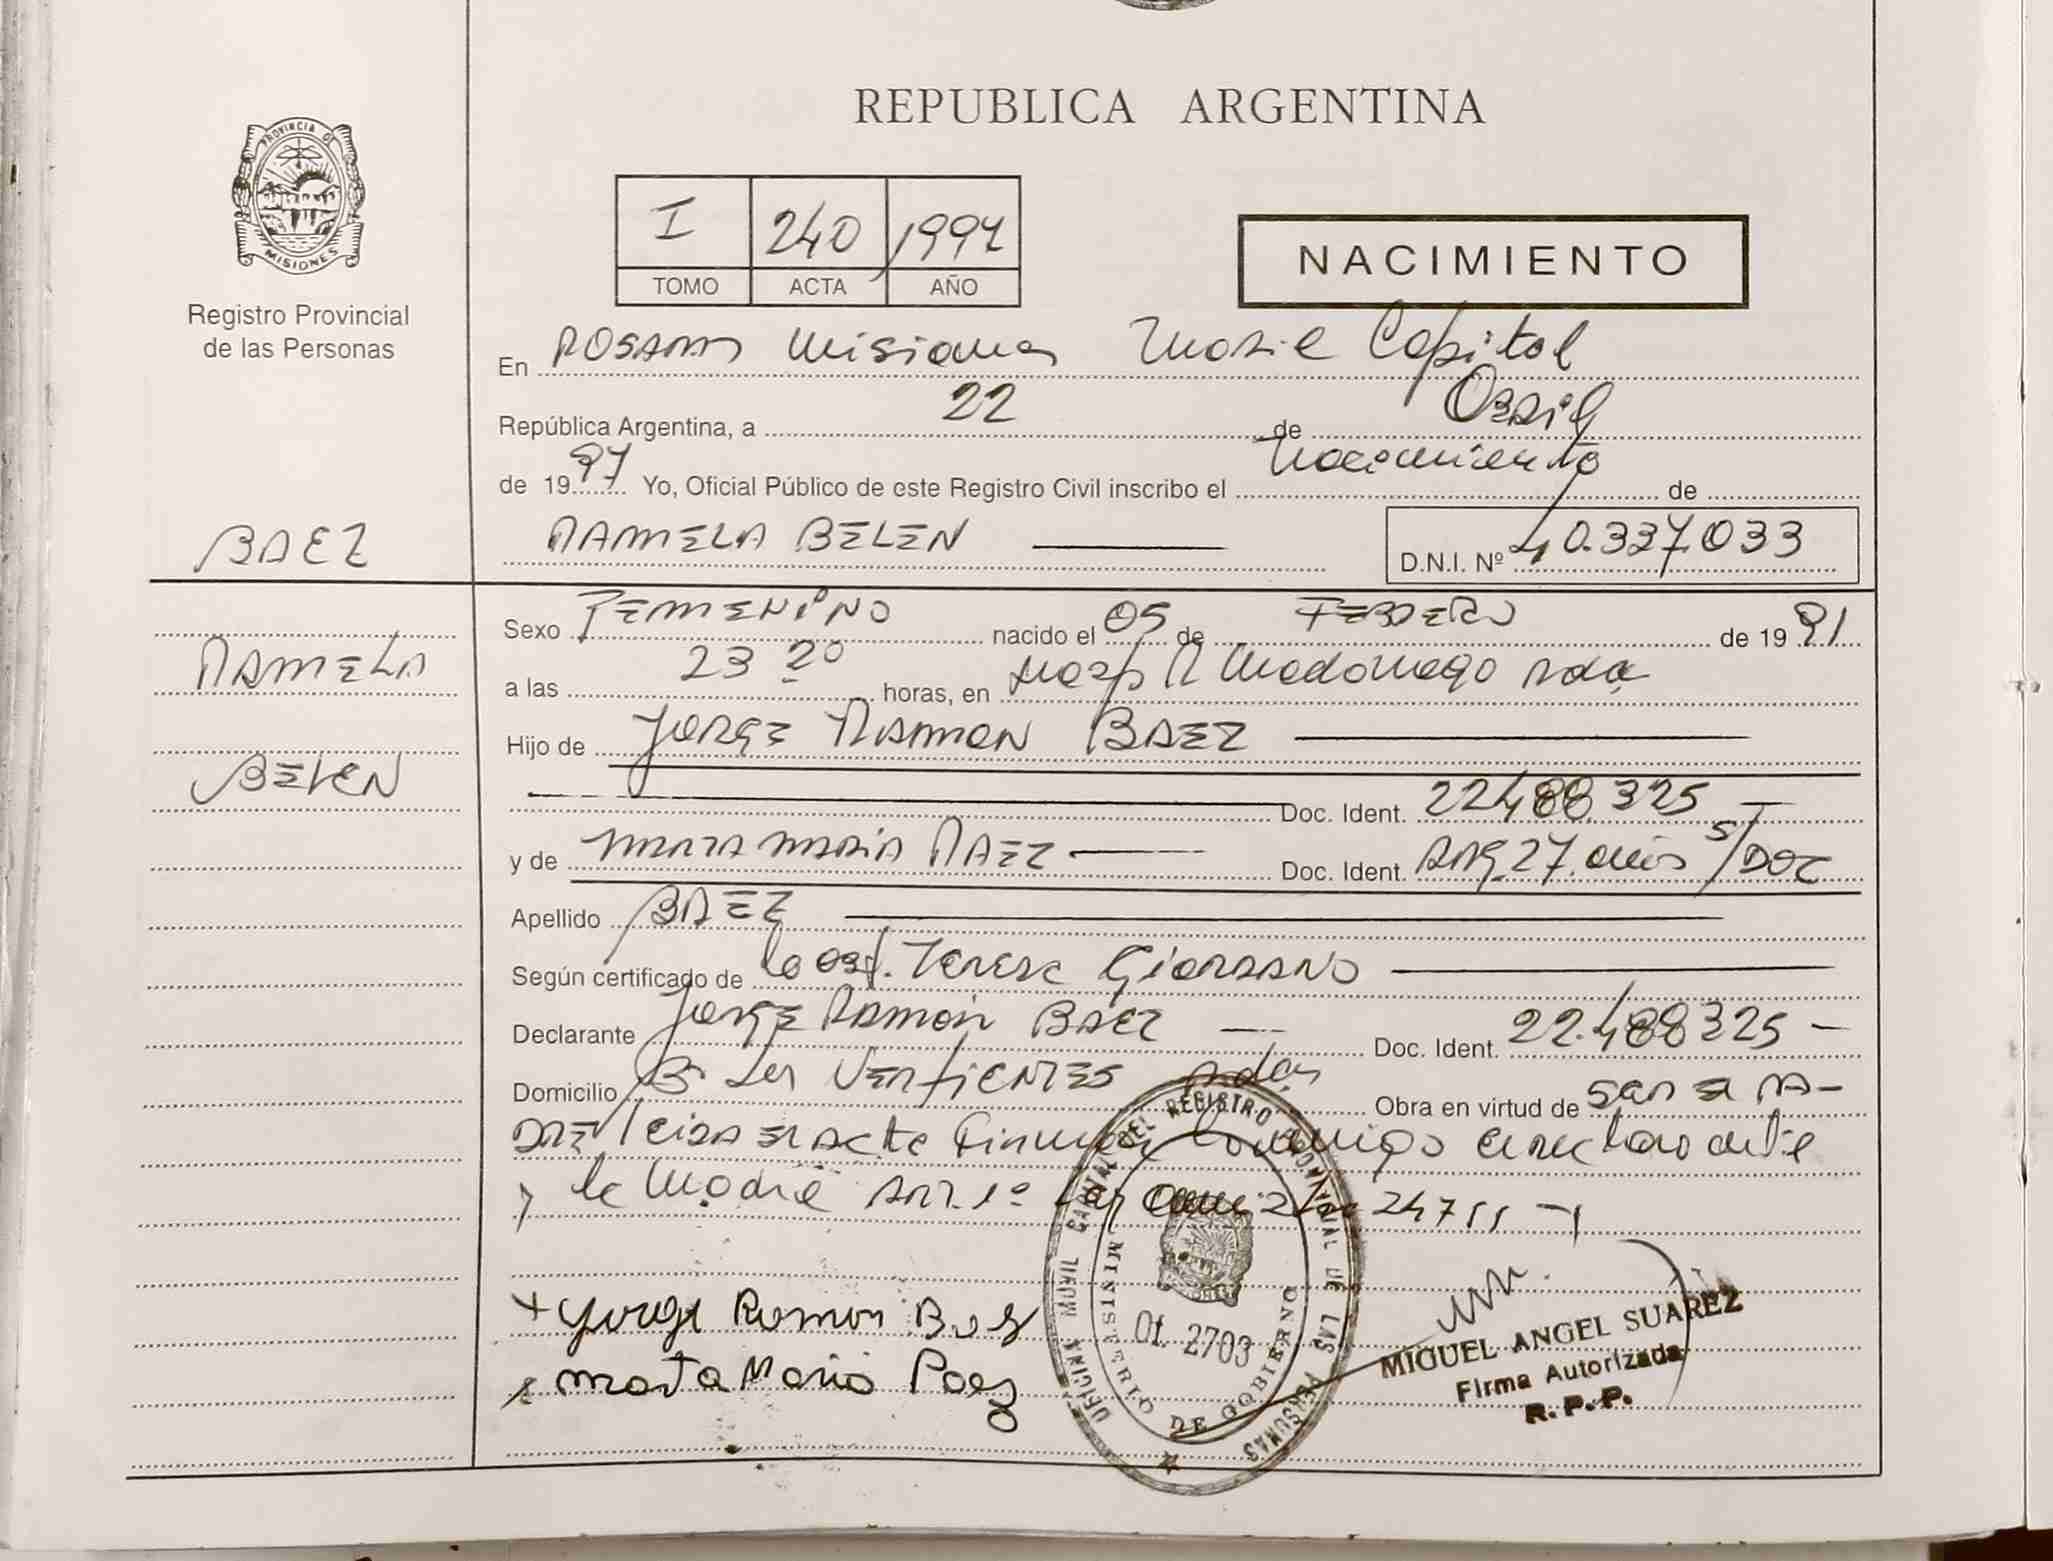 REPUBLICA ARGENTINA
PROVINCIA DE
MISIONES
Registro Provincial
de las Personas
I 240 1997
TOMO ACTA AÑO
NACIMIENTO
En Misiones Movil Capital
República Argentina, a 22 de Abril
de 1997 Yo, Oficial Público de este Registro Civil inscribo el Nacimiento de
BAEZ
PAMELA BELEN
D.N.I. Nº 40.337.033
Sexo FEMENINO nacido el 05 de FEBRERO de 19
PAMELA
a las 23 20 horas, en Hosp R Madariaga Pdas
Hijo de JORGE RAMON BAEZ
BELEN
Doc. Ident. 22.488.325
y de MARIA Doc. Ident. ARG. 27 años S/DOC
Apellido BAEZ
Según certificado de la Obst. Teresa
Declarante Jorge RAMON BAEZ Doc. Ident. 22.488325
Domicilio Bº Las VERTIENTES Pdas Obra en virtud de ser el PA-
DRE leida el Acta Firman Conmigo el declarante
y la Madre
Jorge Ramon Baez
Marta Maria Paez
OFICINA MOVIL CAPITAL DEL REGISTRO PROVINCIAL DE LAS PERSONAS
MINISTERIO DE GOBIERNO
Of. 2703
MIGUEL ANGEL SUAREZ
Firma Autorizada
R.P.P.